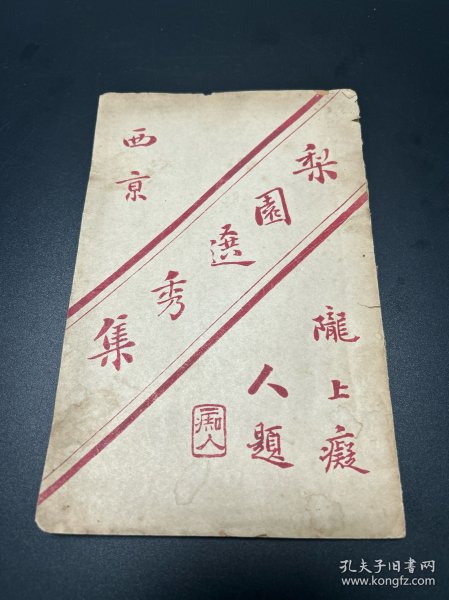 西京
梨園選秀集
隴上癡
人題
痴人
孔夫子旧书网
www.kongfz.com